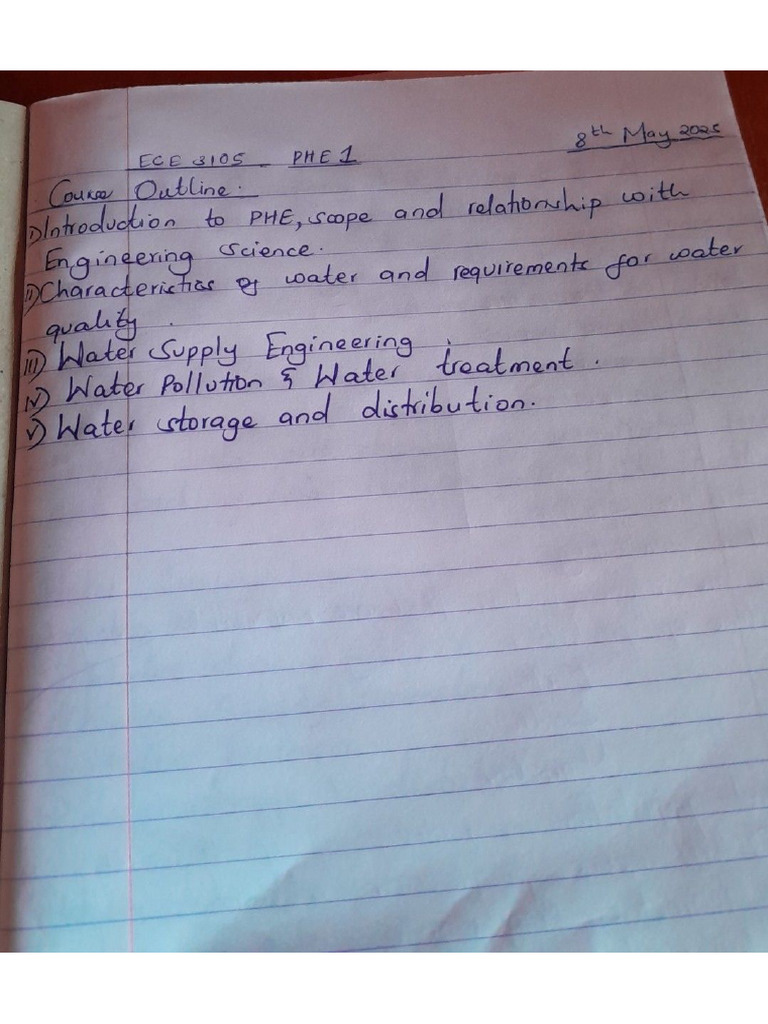 8th May 2025
ECE 3105 - PHE 1
Course Outline.
i) Introduction to PHE, scope and relationship with
Engineering science.
ii) Characteristics of water and requirements for water
quality.
iii) Water Supply Engineering.
iv) Water Pollution & Water treatment.
v) Water storage and distribution.